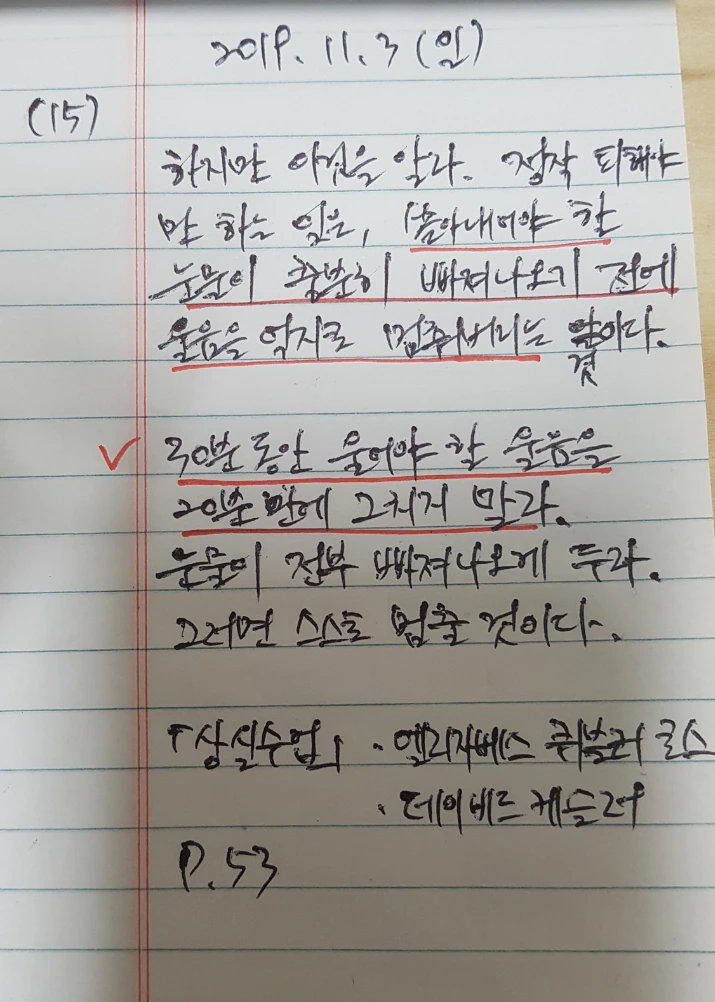 2019. 11. 3 (일)
(15)
하지만 이것을 알라. 정작 피해야
만 하는 일은, 쏟아내어야 할
눈물이 충분히 빠져나오기 전에
울음을 억지로 멈춰버리는 것이다.
30분 동안 울어야 할 울음을
20분 만에 그치지 말라.
눈물이 전부 빠져나오게 두라.
그러면 스스로 멈출 것이다.
「상실수업」 · 엘리자베스 퀴블러 로스
· 데이비드 케슬러
P. 53